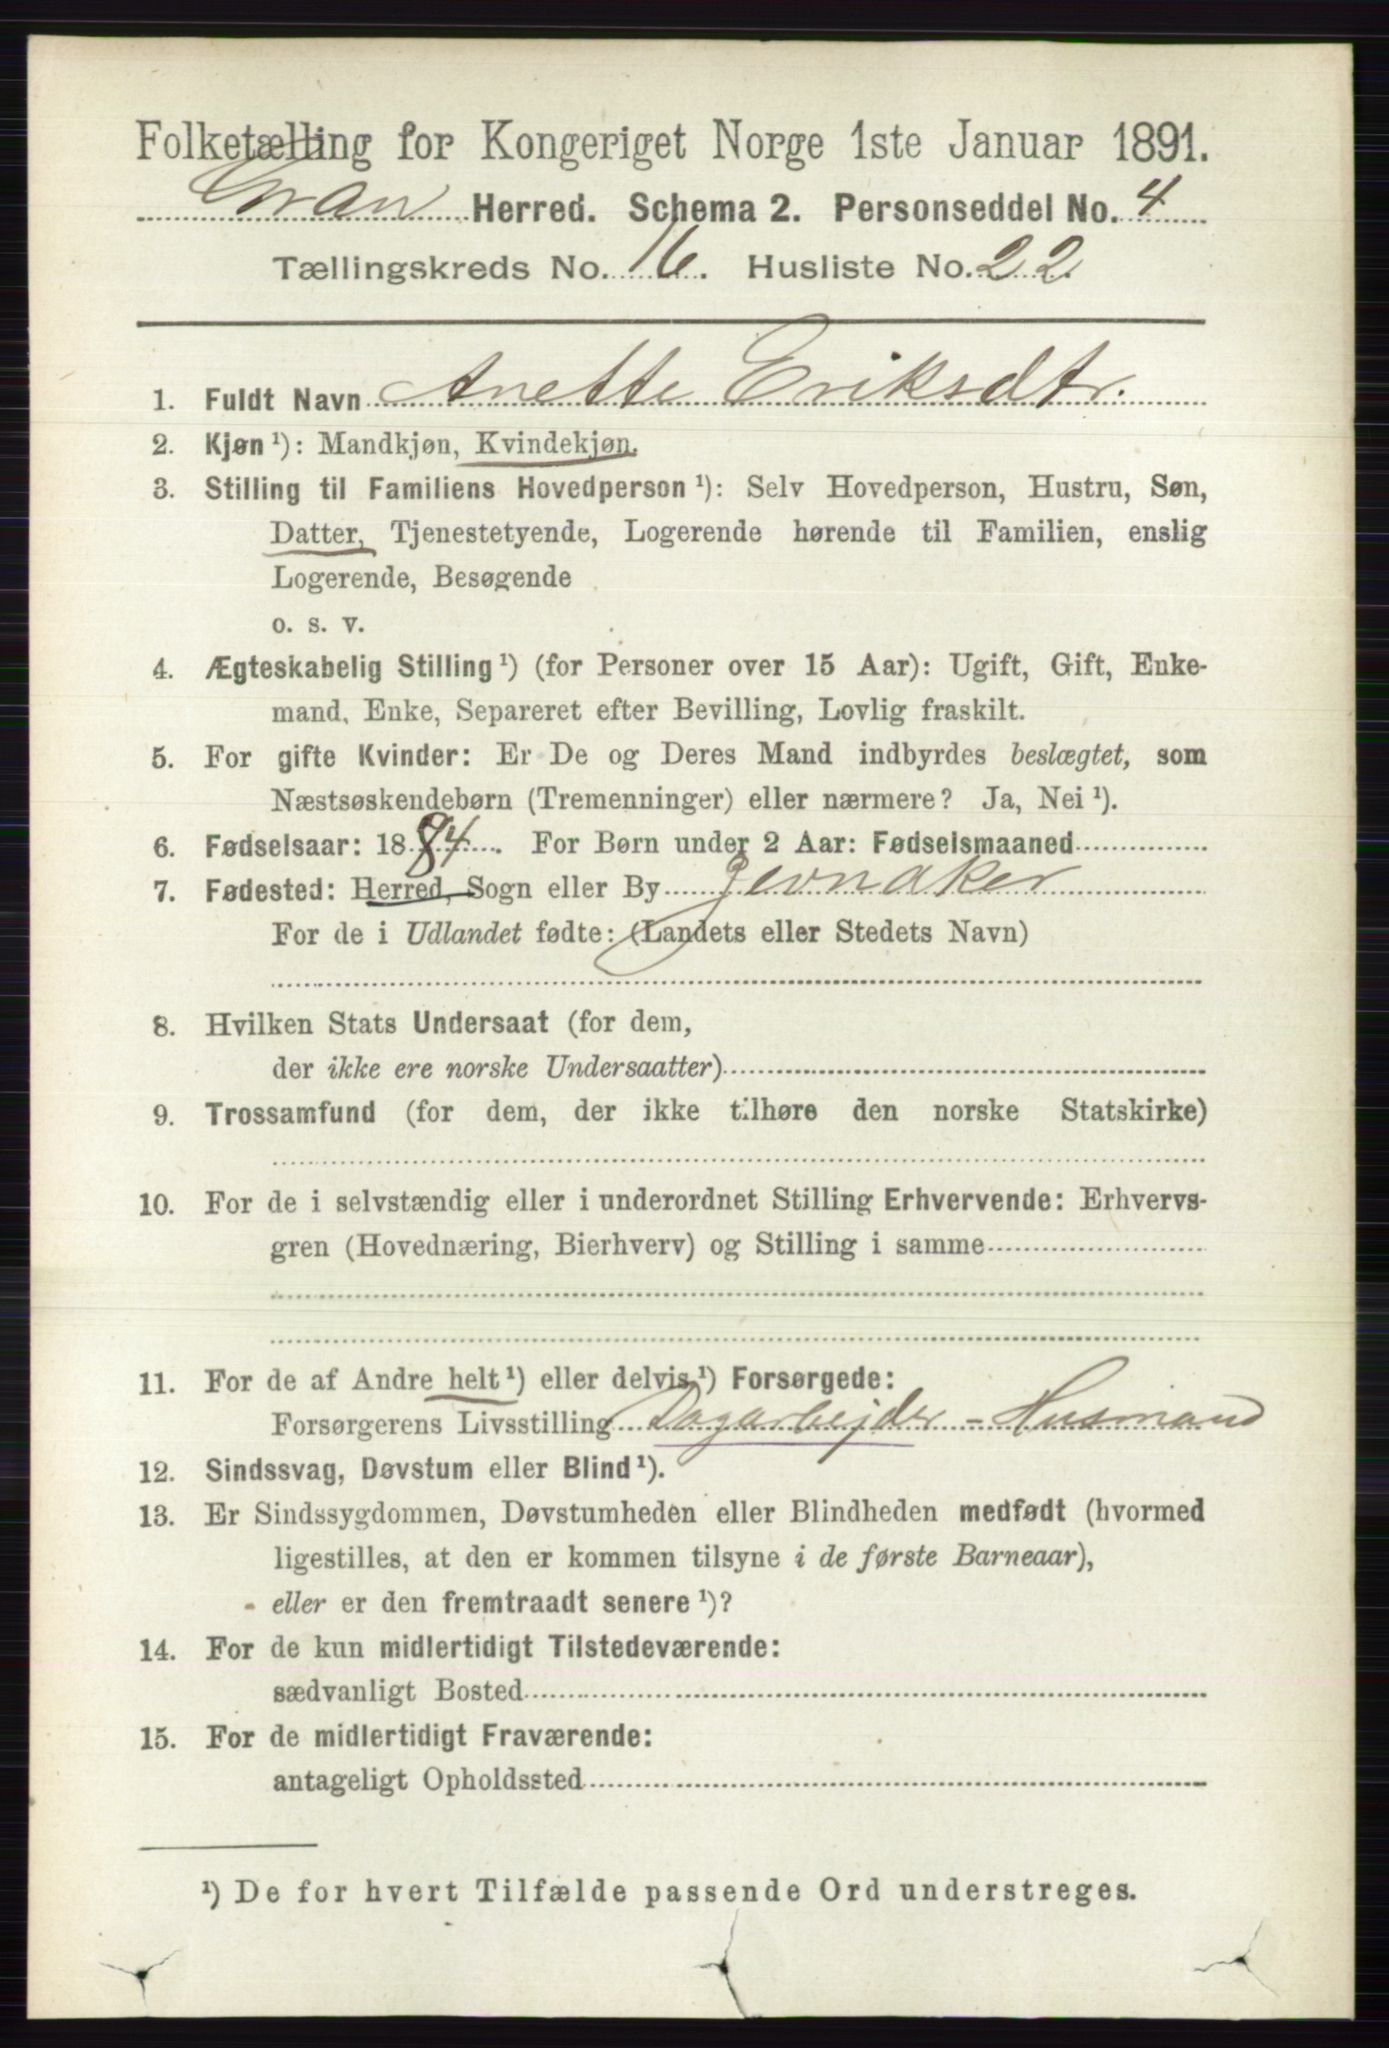 Folketælling for Kongeriget Norge 1ste Januar 1891.
Gran Herred. Schema 2. Personseddel No. 4
Tællingskreds No. 16. Husliste No. 22.
1. Fuldt Navn Anette Eriksdtr.
2. Kjøn ¹): Mandkjøn, Kvindekjøn.
3. Stilling til Familiens Hovedperson ¹): Selv Hovedperson, Hustru, Søn,
Datter, Tjenestetyende, Logerende hørende til Familien, enslig
Logerende, Besøgende
o. s. v.
4. Ægteskabelig Stilling ¹) (for Personer over 15 Aar): Ugift, Gift, Enke-
mand, Enke, Separeret efter Bevilling, Lovlig fraskilt.
5. For gifte Kvinder: Er De og Deres Mand indbyrdes beslægtet, som
Næstsøskendebørn (Tremenninger) eller nærmere? Ja, Nei ¹).
6. Fødselsaar: 1884. For Børn under 2 Aar: Fødselsmaaned
7. Fødested: Herred, Sogn eller By Jevnaker
For de i Udlandet fødte: (Landets eller Stedets Navn)
8. Hvilken Stats Undersaat (for dem,
der ikke ere norske Undersaatter)
9. Trossamfund (for dem, der ikke tilhøre den norske Statskirke)
10. For de i selvstændig eller i underordnet Stilling Erhvervende: Erhvervs-
gren (Hovednæring, Bierhverv) og Stilling i samme
11. For de af Andre helt ¹) eller delvis ¹) Forsørgede:
Forsørgerens Livsstilling Dagarbejder - Husmand
12. Sindssvag, Døvstum eller Blind ¹).
13. Er Sindssygdommen, Døvstumheden eller Blindheden medfødt (hvormed
ligestilles, at den er kommen tilsyne i de første Barneaar),
eller er den fremtraadt senere ¹)?
14. For de kun midlertidigt Tilstedeværende:
sædvanligt Bosted
15. For de midlertidigt Fraværende:
antageligt Opholdssted
¹) De for hvert Tilfælde passende Ord understreges.